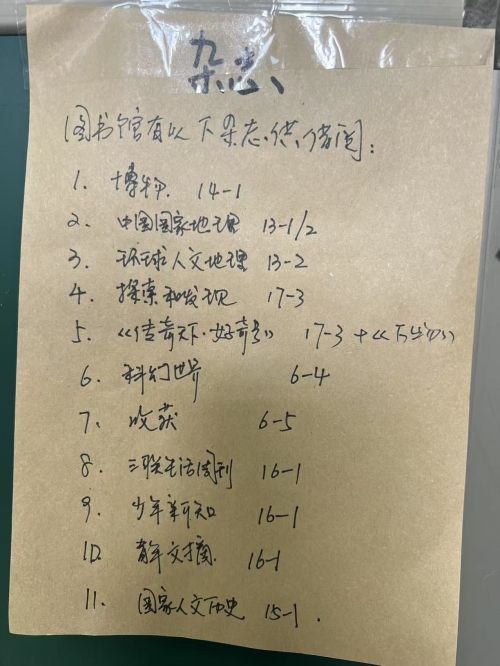 杂志
图书馆有以下杂志供借阅：
1. 博物 14-1
2. 中国国家地理 13-1/2
3. 环球人文地理 13-2
4. 探索和发现 17-3
5. 《传奇天下·好奇号》 17-3 + 《万物》
6. 科幻世界 6-4
7. 收获 6-5
8. 三联生活周刊 16-1
9. 少年新知 16-1
10. 青年文摘 16-1
11. 国家人文历史 15-1.